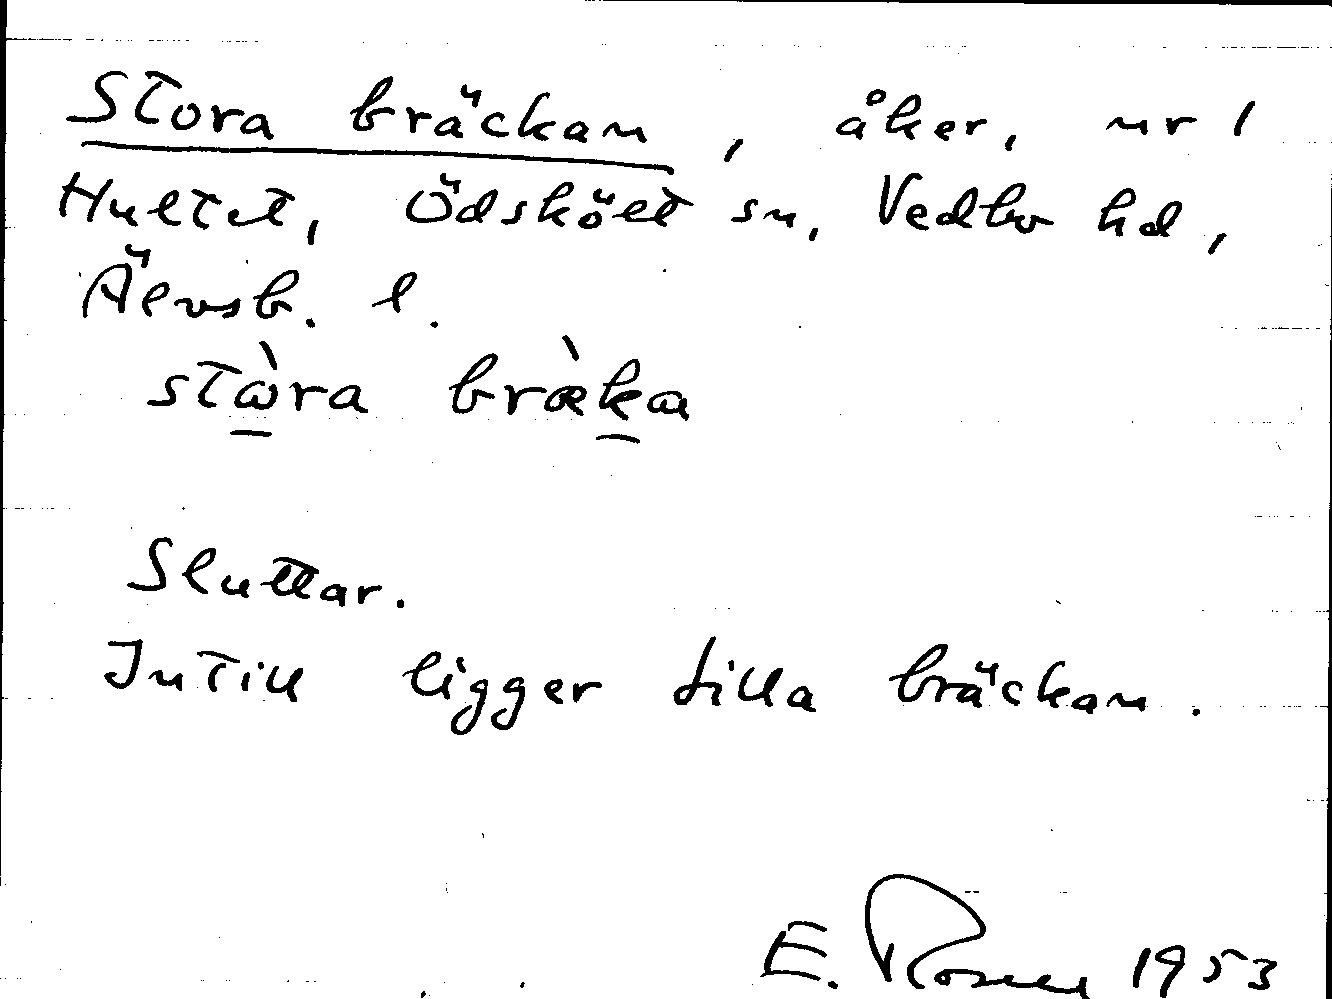 Stora bräckan, åker, nr 1
Hultet, Ödskölt sn, Vedbo hd,
Älvsb. l.
stὼra bræ̀ka
Sluttar.
Intill ligger lilla bräckan.
E. Rosell 1953